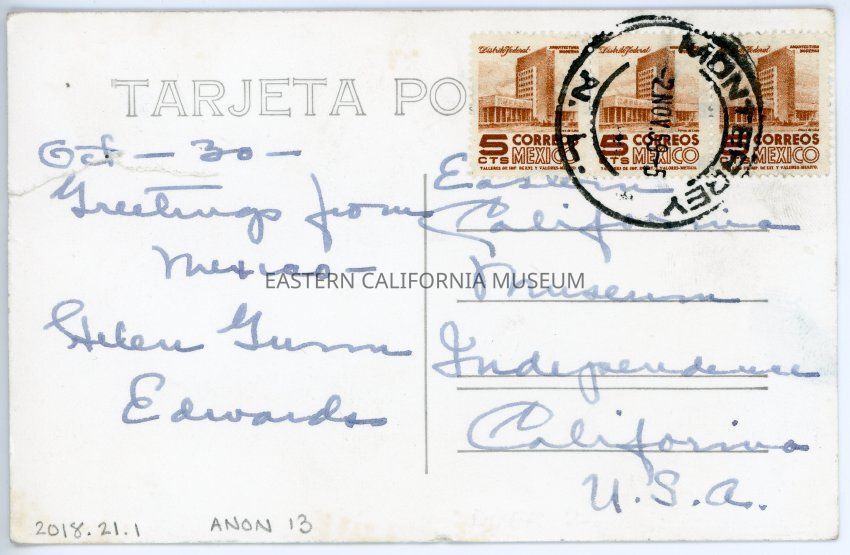 TARJETA PO
Distrito Federal ARQUITECTURA MODERNA
5 CTS CORREOS MEXICO
TALLERES DE IMP. DE EST. Y VALORES-MEXICO.
Distrito Federal
5 CTS CORREOS MEXICO
Distrito Federal ARQUITECTURA MODERNA
5 CTS CORREOS MEXICO
MONTERREY N. L.
2 NOV
Oct - 30 -
Greetings from
Mexico -
Helen Gunn
Edwards
Eastern
California
Museum
Independence
California
U.S.A.
EASTERN CALIFORNIA MUSEUM
2018.21.1 ANON 13